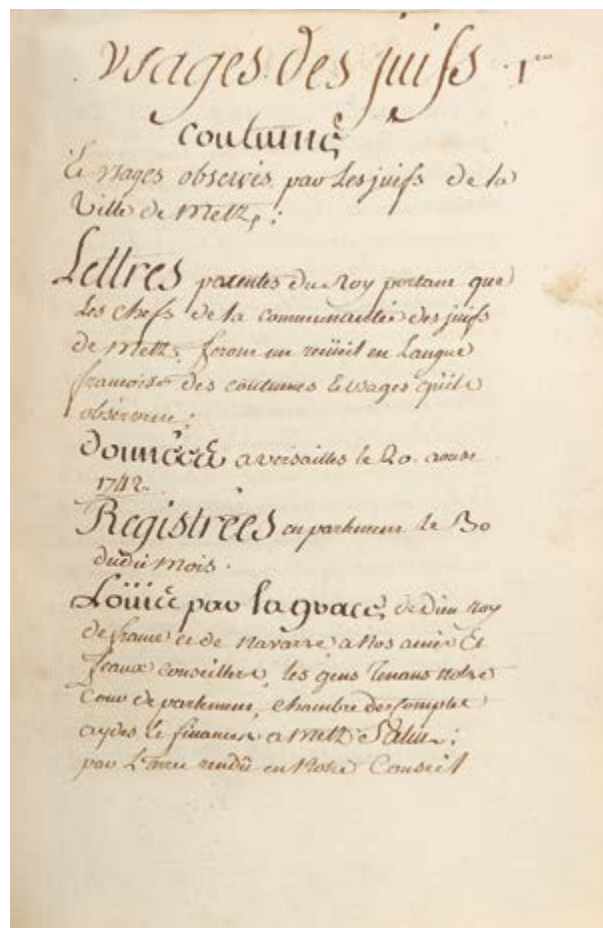 Usages des juifs . 1er
coutumes
Et usages observés par Les juifs de la
Ville de Metz, :
Lettres patentes du Roy portant que
Les chefs de la communauté des juifs
de Metz, feront un recüeil en Langue
françoise des coutumes & usages qu'ils
observent ;
Données a versailles le 20. aoust
1742.
Registrées en parlement le 30
dudit mois .
Loüis par la grace, de Dieu Roy
de france et de Navarre a Nos amés Et
feaux conseillers, les gens tenans Notre
Cour de parlement, chambre des Comptes
aydes et finances a Metz Salut ;
par L'arrest rendu en Notre Conseil